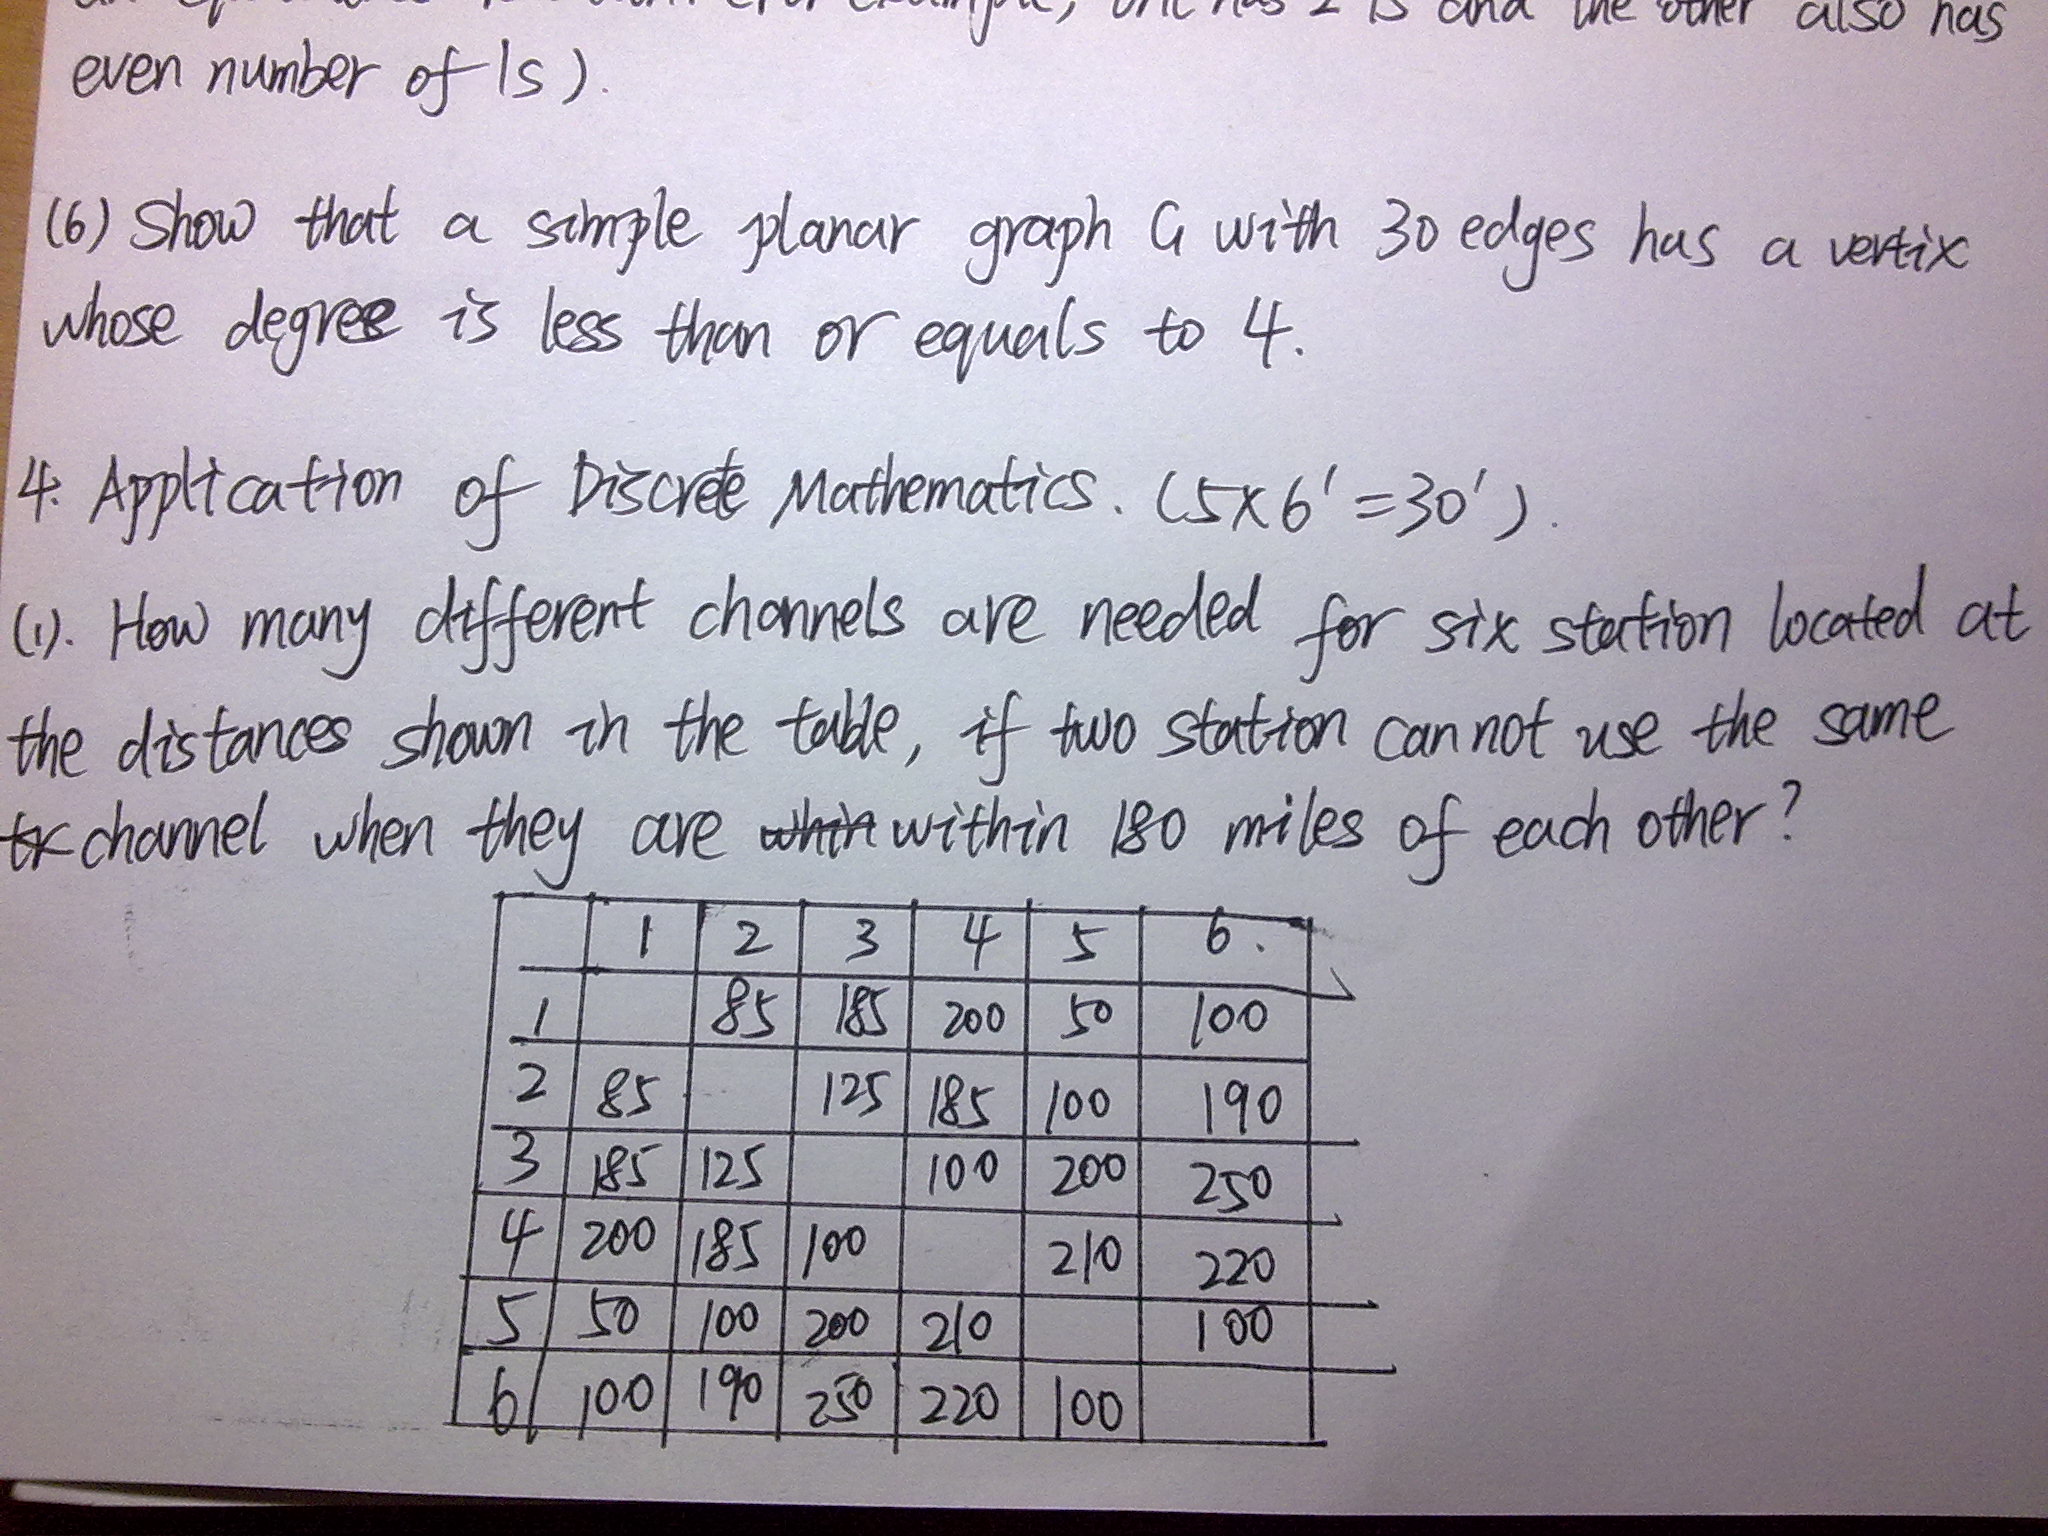 example, one has 2 1s and the other also has
even number of 1s).
(6) Show that a simple planar graph G with 30 edges has a vertix
whose degree is less than or equals to 4.
4. Application of Discrete Mathematics. (5×6'=30').
(1). How many different channels are needed for six station located at
the distances shown in the table, if two station cannot use the same
channel when they are within 180 miles of each other?
1 2 3 4 5 6.
1 85 185 200 50 100
2 85 125 185 100 190
3 185 125 100 200 250
4 200 185 100 210 220
5 50 100 200 210 100
6 100 190 250 220 100